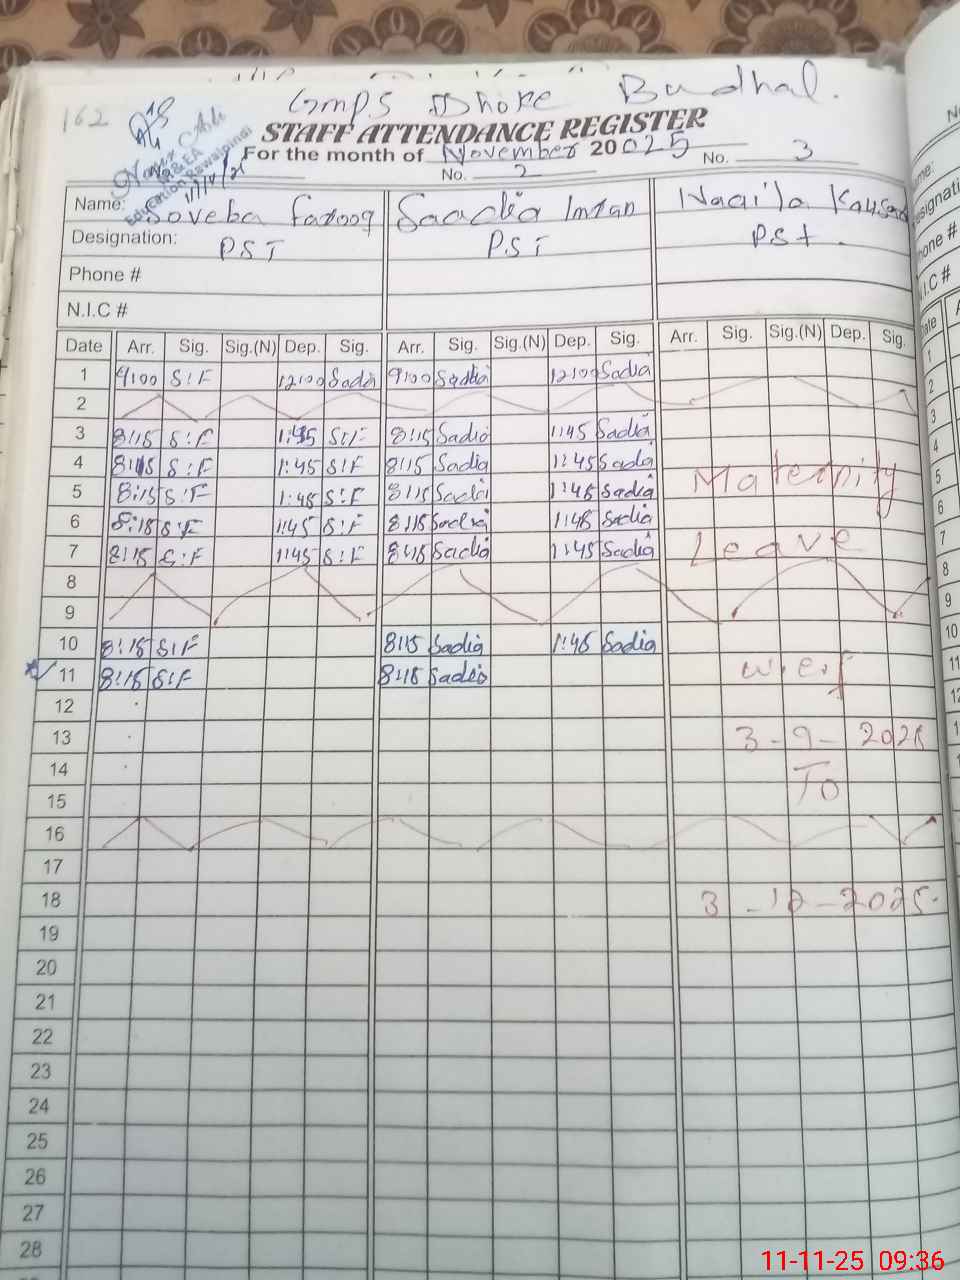 162
Gmps Dhoke Budhal.
STAFF ATTENDANCE REGISTER
For the month of November 20 025
No. 2 No. 3
Education Rawalpindi
Name: Soveba Farooq Saadia Imran Naqila Kausar
Designation: PST PST PST.
Phone #
N.I.C #
Date Arr. Sig. Sig.(N) Dep. Sig. Arr. Sig. Sig.(N) Dep. Sig. Arr. Sig. Sig.(N) Dep. Sig.
1 9:00 S:F 12:00 Sadia 9:00 Sadia 12:00 Sadia
2
3 8:15 S:F 1:45 S:F 8:15 Sadia 1:45 Sadia
4 8:15 S:F 1:45 S:F 8:15 Sadia 1:45 Sadia Maternity
5 8:15 S:F 1:45 S:F 8:15 Sadia 1:45 Sadia
6 8:15 S:F 1:45 S:F 8:15 Sadia 1:45 Sadia
7 8:15 S:F 1:45 S:F 8:15 Sadia 1:45 Sadia Leave
8
9
10 8:15 S:F 8:15 Sadia 1:45 Sadia
11 8:15 S:F 8:15 Sadia w.e.f
12
13 3-9-2025
14
15 To
16
17
18 3-12-2025.
19
20
21
22
23
24
25
26
27
28
11-11-25 09:36